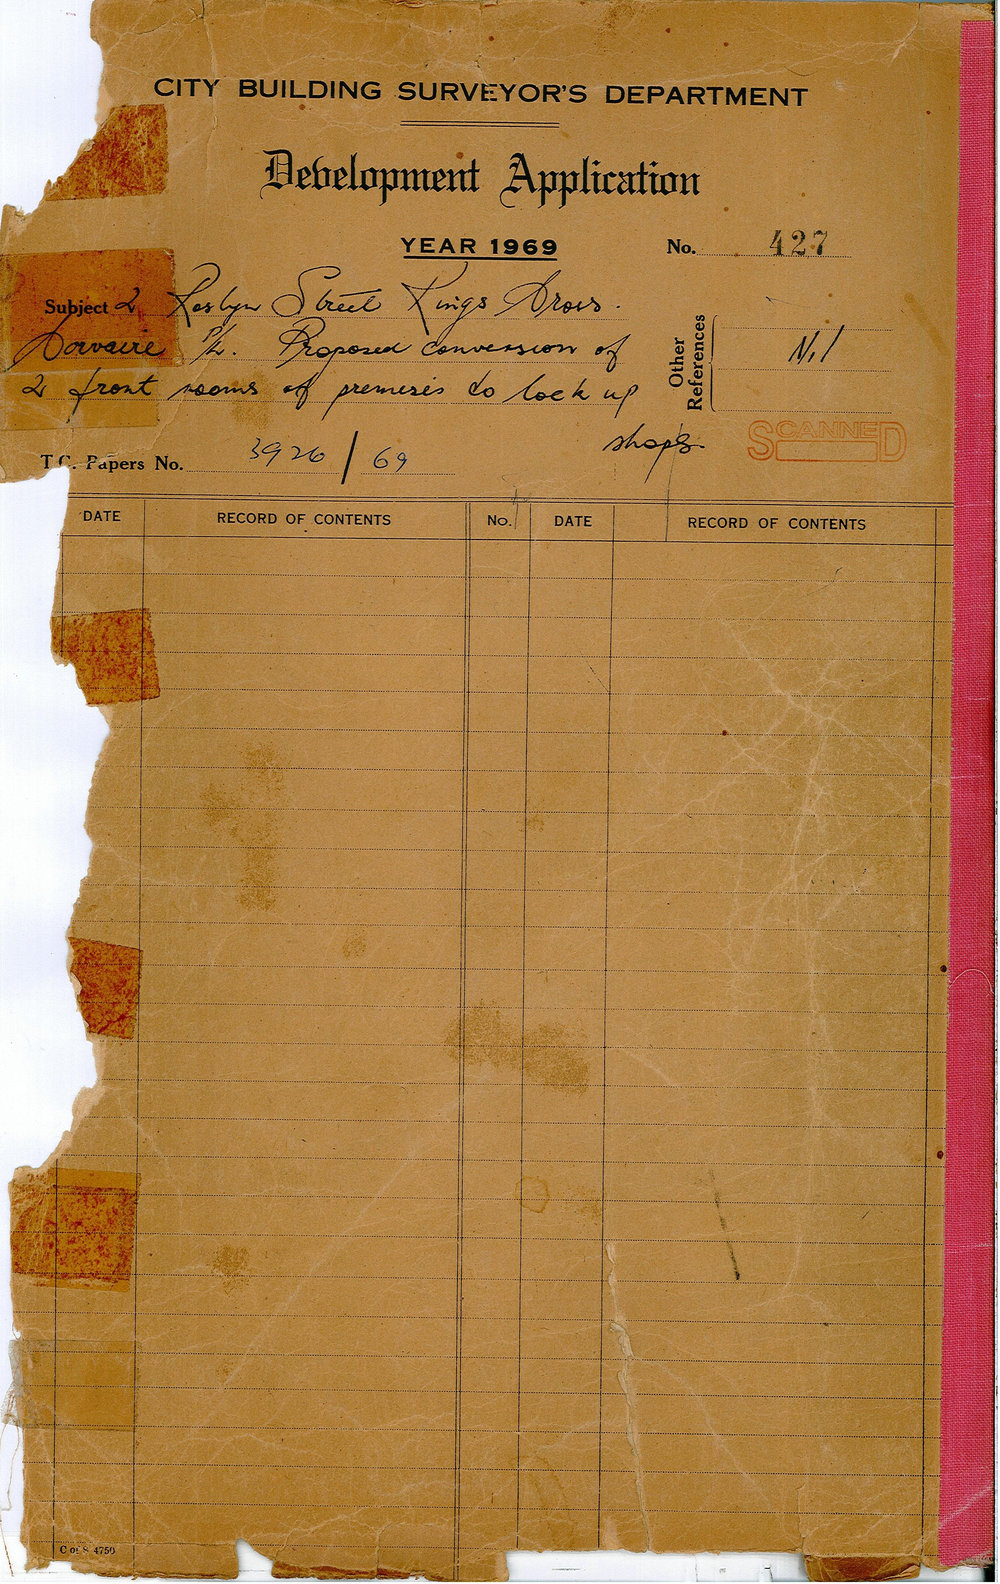 CITY BUILDING SURVEYOR'S DEPARTMENT
Development Application
YEAR 1969 No. 427
Subject 2 Roslyn Street Kings Cross.
P/L. Proposed conversion of
2 front rooms of premises to lock up
shops.
Other References Nil
SCANNED
T.C. Papers No. 3926/69
DATE RECORD OF CONTENTS No. DATE RECORD OF CONTENTS
C of S 4750